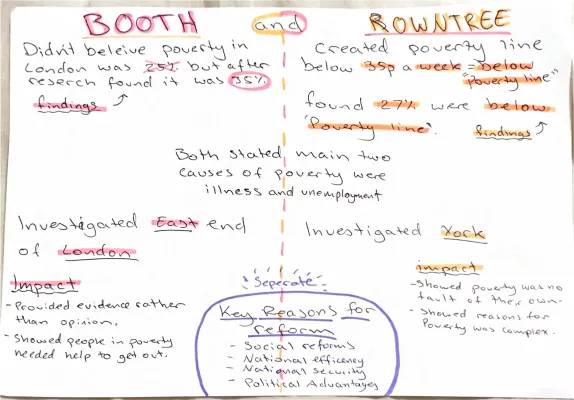 BOOTH and ROWNTREE
Didn't beleive poverty in
London was 25% but after
reserch found it was 35%.
findings
Created poverty line
below 35p a week = below
"poverty line"
found 27% were below
'Poverty line'.
findings
Both stated main two
causes of poverty were
illness and unemployment
Investigated East end
of London
Impact
- Provided evidence rather
than opinion.
- Showed people in poverty
needed help to get out.
Investigated York
impact
- Showed poverty was no
fault of their own.
- Showed reasons for
Poverty was complex.
Seperate
Key Reasons for
reform
- Social reforms
- National efficency
- National security
- Political Advantages